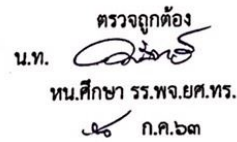 ตรวจถูกต้อง
น.ท.
หน.ศึกษา รร.พจ.ยศ.ทร.
ก.ค.๖๓